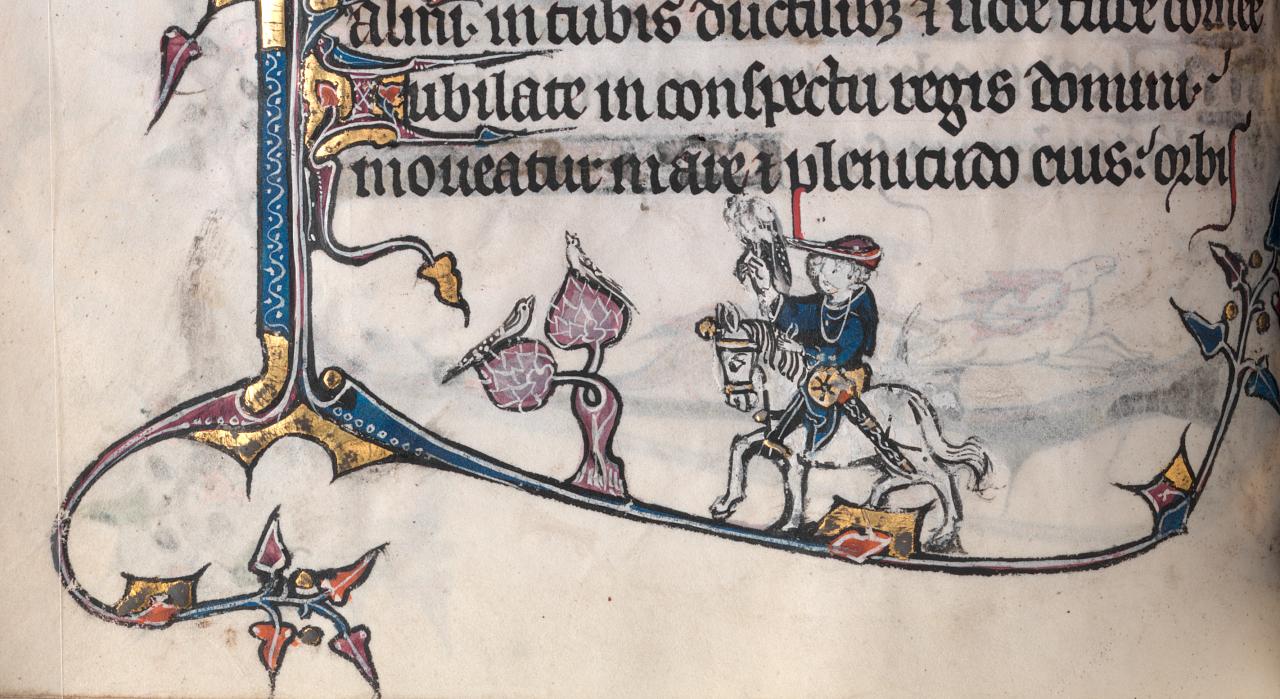 almi· in tubis ductilibꝫ ⁊ uoce tube cornee
Iubilate in conspectu regis domini·
moueatur mare ⁊ plenitudo eius: orbis